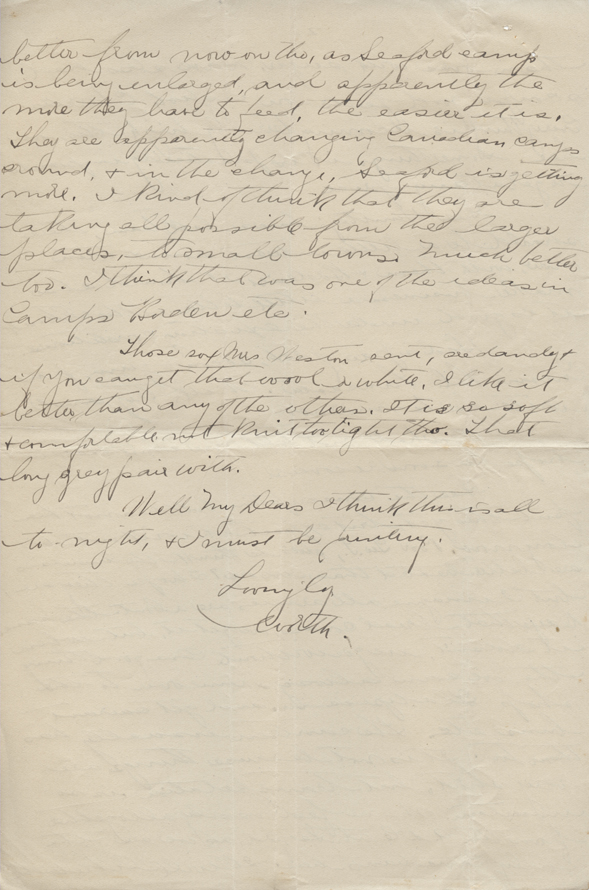 better from now on tho, as Seaford camp
is being enlarged, and apparently the
more they have to feed, the easier it is.
They are apparently changing Canadian camps
around, & in the change, Seaford is getting
more. I kind of think that they are
taking all possible from the larger
places, to small towns. Much better
too. I think that was one of the ideas in
Camps Borden etc.
Those sox Mrs Weston sent, are dandy &
if you can get that wool in white, I like it
better than any of the others. It is so soft
& comfortable not knit too tight tho. That
long grey pair with.
Well My Dears I think this is all
to-night, & I must be
Lovingly
Worth.